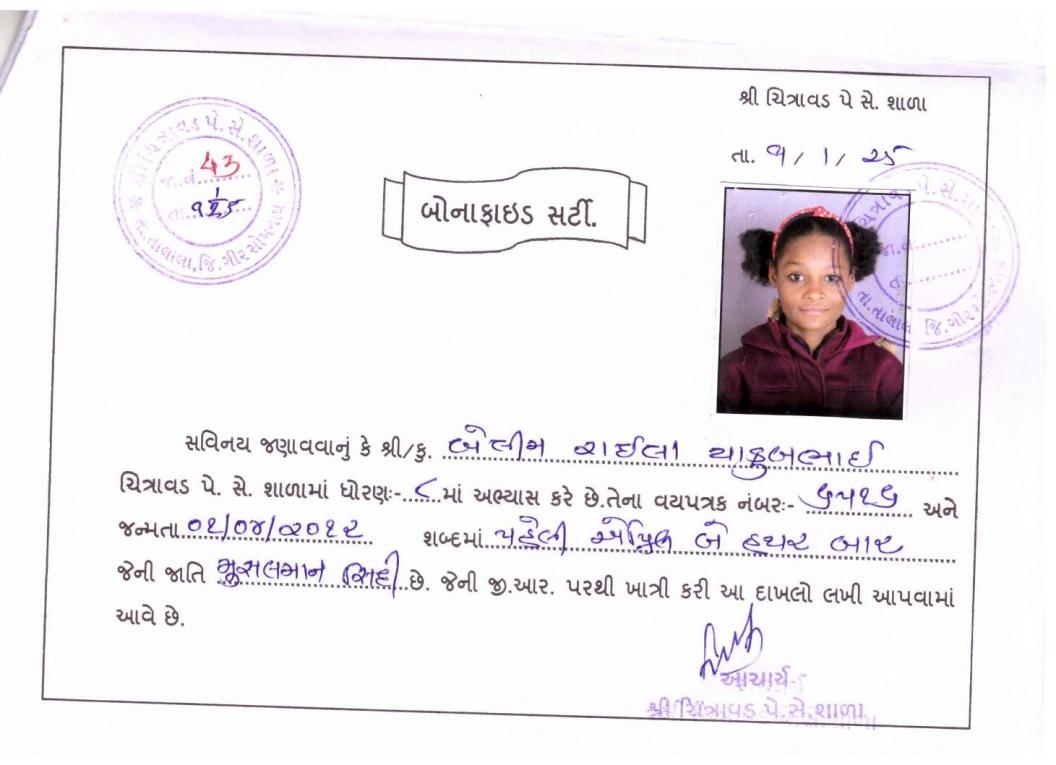 શ્રી ચિત્રાવડ પે સે. શાળા
તા. ૧ / ૧ / ૨૫
શ્રી ચિત્રાવડ પે. સે. શાળા
જા.નં. 43
તા.
તા. તાલાલા, જિ. ગીર સોમનાથ
બોનાફાઇડ સર્ટી.
સવિનય જણાવવાનું કે શ્રી/કુ. બેલીમ રાઈલા યાકુબભાઈ
ચિત્રાવડ પે. સે. શાળામાં ધોરણઃ- ૮ માં અભ્યાસ કરે છે.તેના વયપત્રક નંબરઃ- ૬૫૧૬ અને
જન્મતા ૦૧/૦૪/૨૦૧૨ શબ્દમાં પહેલી એપ્રિલ બે હજાર બાર
જેની જાતિ મુસલમાન સિદ્દી છે. જેની જી.આર. પરથી ખાત્રી કરી આ દાખલો લખી આપવામાં
આવે છે.
આચાર્ય
શ્રી ચિત્રાવડ પે. સે. શાળા